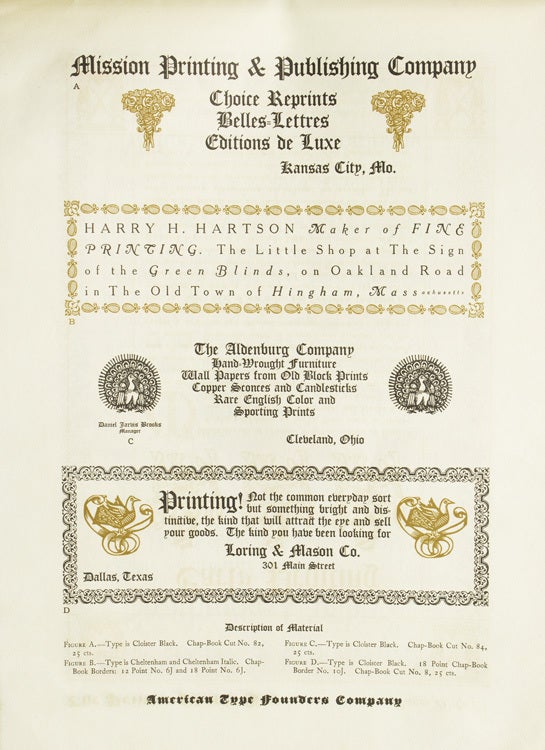 Mission Printing & Publishing Company
A
Choice Reprints
Belles-Lettres
Editions de Luxe
Kansas City, Mo.
HARRY H. HARTSON Maker of FINE
PRINTING. The Little Shop at The Sign
of the Green Blinds, on Oakland Road
in The Old Town of Hingham, Massachusetts
B
The Aldenburg Company
Hand-Wrought Furniture
Wall Papers from Old Block Prints
Copper Sconces and Candlesticks
Rare English Color and
Sporting Prints
Daniel Jarvis Brooks
Manager
C
Cleveland, Ohio
Printing! Not the common everyday sort
but something bright and dis-
tinctive, the kind that will attract the eye and sell
your goods. The kind you have been looking for
Loring & Mason Co.
301 Main Street
Dallas, Texas
D
Description of Material
FIGURE A.—Type is Cloister Black. Chap-Book Cut No. 82,
25 cts.
FIGURE B.—Type is Cheltenham and Cheltenham Italic. Chap-
Book Borders: 12 Point No. 6J and 18 Point No. 6J.
FIGURE C.—Type is Cloister Black. Chap-Book Cut No. 84,
25 cts.
FIGURE D.—Type is Cloister Black. 18 Point Chap-Book
Border No. 10J. Chap-Book Cut No. 8, 25 cts.
American Type Founders Company